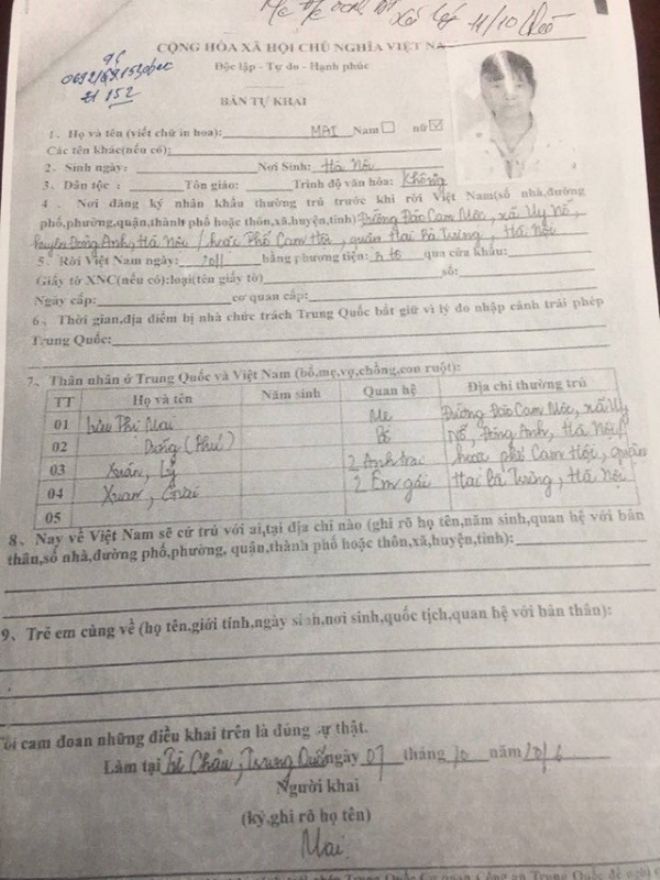 11/10
CỘNG HÒA XÃ HỘI CHỦ NGHĨA VIỆT NA
Độc lập - Tự do - Hạnh phúc
152
BẢN TỰ KHAI
1、Họ và tên (viết chữ in hoa): MAI Nam nữ
Các tên khác(nếu có):
2、Sinh ngày: Nơi Sinh: Hà Nội
3、Dân tộc : Tôn giáo: Trình độ văn hóa: Không
4 、Nơi đăng ký nhân khẩu thường trú trước khi rời Việt Nam(số nhà,đường
phố,phường,quận,thành phố hoặc thôn,xã,huyện,tỉnh) Đường Đào Cam Mộc, xã Uy Nỗ,
huyện Đông Anh, Hà Nội / hoặc Phố Cam Hội, quận Hai Bà Trưng, Hà Nội
5、Rời Việt Nam ngày: 2011 bằng phương tiện: ô tô qua cửa khẩu:
Giấy tờ XNC(nếu có):loại(tên giấy tờ) số:
Ngày cấp: cơ quan cấp:
6、Thời gian,địa điểm bị nhà chức trách Trung Quốc bắt giữ vì lý do nhập cảnh trái phép
Trung Quốc:
7、Thân nhân ở Trung Quốc và Việt Nam (bố,mẹ,vợ,chồng,con ruột):
TT Họ và tên Năm sinh Quan hệ Địa chỉ thường trú
01 Thị Mai Mẹ Đường Đào Cam Mộc, xã Uy
02 Dương (Phú) Bố Nỗ, Đông Anh, Hà Nội/
03 Xuân, Lý 2 Anh trai hoặc phố Cam Hội, quận
04 Xuan, 2 Em gái Hai Bà Trưng, Hà Nội
05
8、Nay về Việt Nam sẽ cư trú với ai,tại địa chỉ nào (ghi rõ họ tên,năm sinh,quan hệ với bản
thân,số nhà,đường phố,phường, quận,thành phố hoặc thôn,xã,huyện,tỉnh):
9、Trẻ em cùng về (họ tên,giới tính,ngày sinh,nơi sinh,quốc tịch,quan hệ với bản thân):
Tôi cam đoan những điều khai trên là đúng sự thật.
Làm tại Châu, Trung Quốc ngày 07 tháng 10 năm 2016
Người khai
(ký,ghi rõ họ tên)
Mai